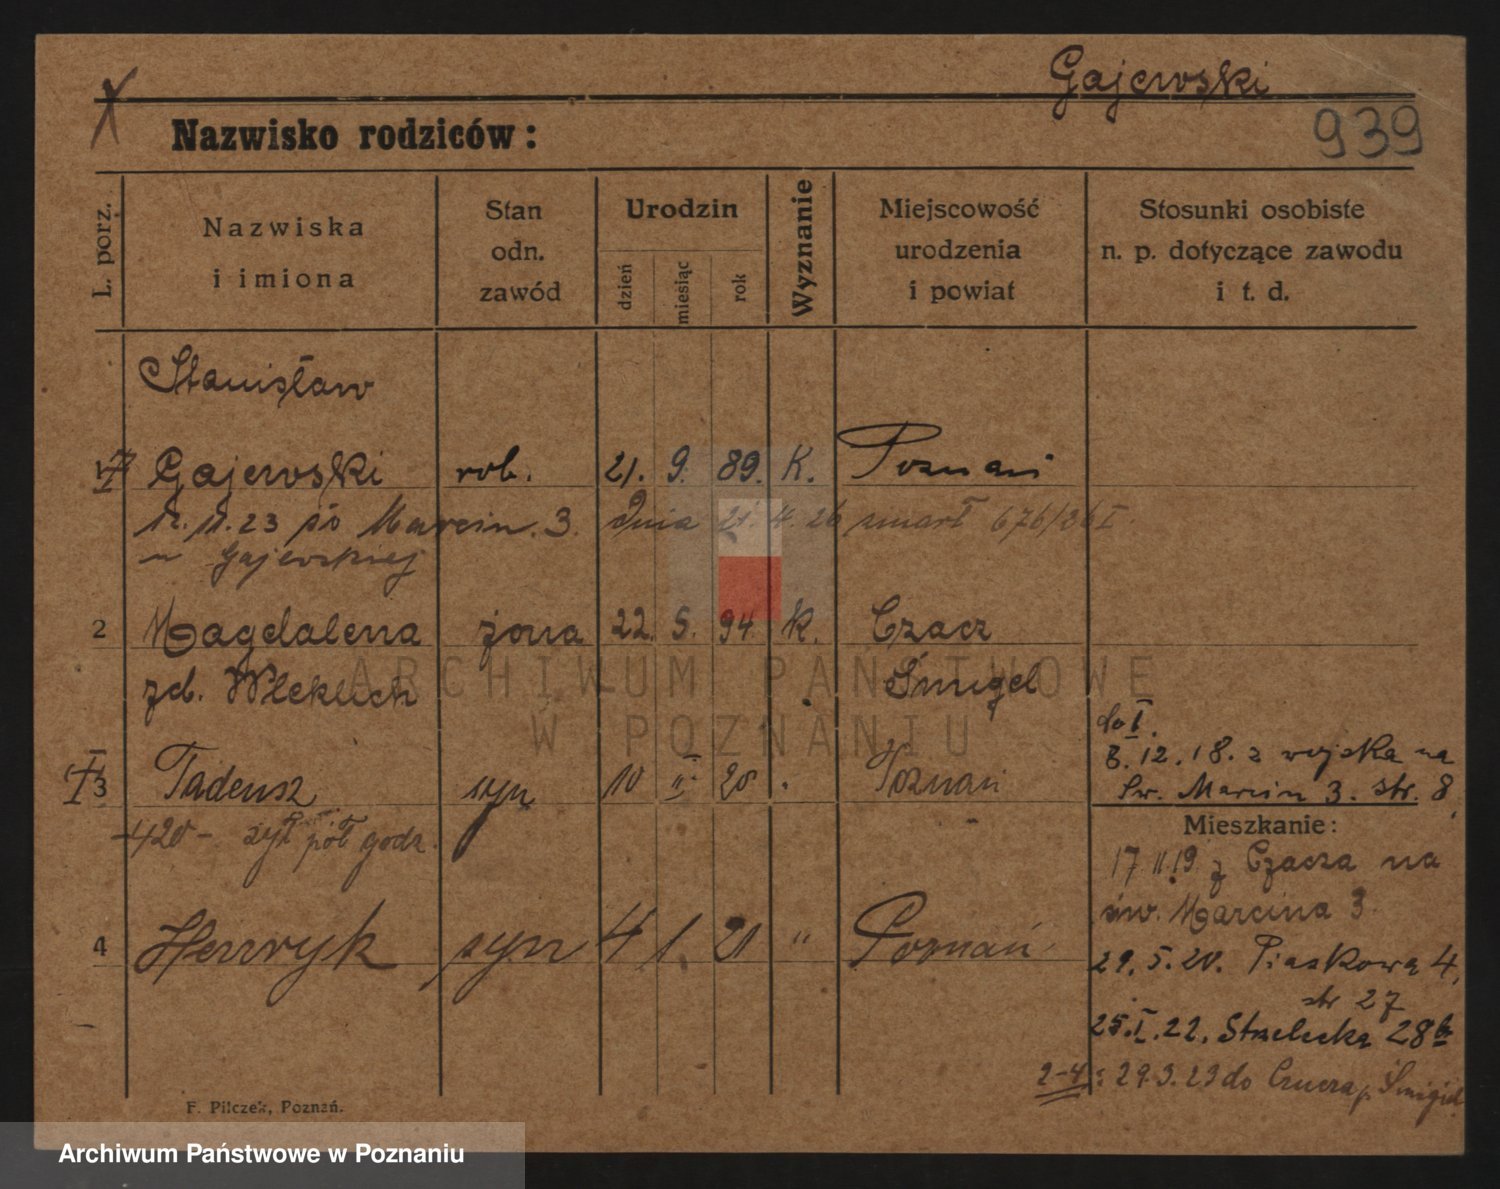 Gajewski
939
Nazwisko rodziców:
L. porz.
Nazwiska
i imiona
Stan
odn.
zawód
Urodzin
dzień
miesiąc
rok
Wyznanie
Miejscowość
urodzenia
i powiat
Stosunki osobiste
n. p. dotyczące zawodu
i t. d.
Stanisław
Gajewski rob. 21. 9. 89. K. Poznań
12. 11. 23 Marcin. 3. dnia 21. 4. 26 zmarł 676/26 I
u Gajewskiej
2 Magdalena żona 22. 5. 94. K. Czacz
zd. Wlekuch Śmigel
do I.
8. 12. 18. z wojska na
Św. Marcin 3. str. 8
3 Tadeusz syn 10 II. 20 Poznań
-420- żył pół godz.
Mieszkanie:
17 11. 19 z Czacza na
św. Marcina 3.
4 Henryk syn 4 1. 21 " Poznań
29. 5. 20. Piaskowa 4,
str 27
25. I. 22. Strzelecka 28b
2-4: 29. 3. 23 do Czacza p. Śmigiel
F. Pilczek, Poznań.
ARCHIWUM PAŃSTWOWE
W POZNANIU
Archiwum Państwowe w Poznaniu